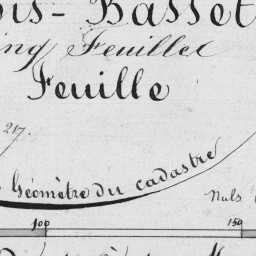 ois-Basset
inq Feuilles
Feuille
217.
Géomètre du cadastre
Nuls
100 150